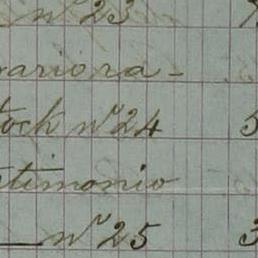 nº 23
variora-
tock nº 24 5
stimonio
nº 25 3